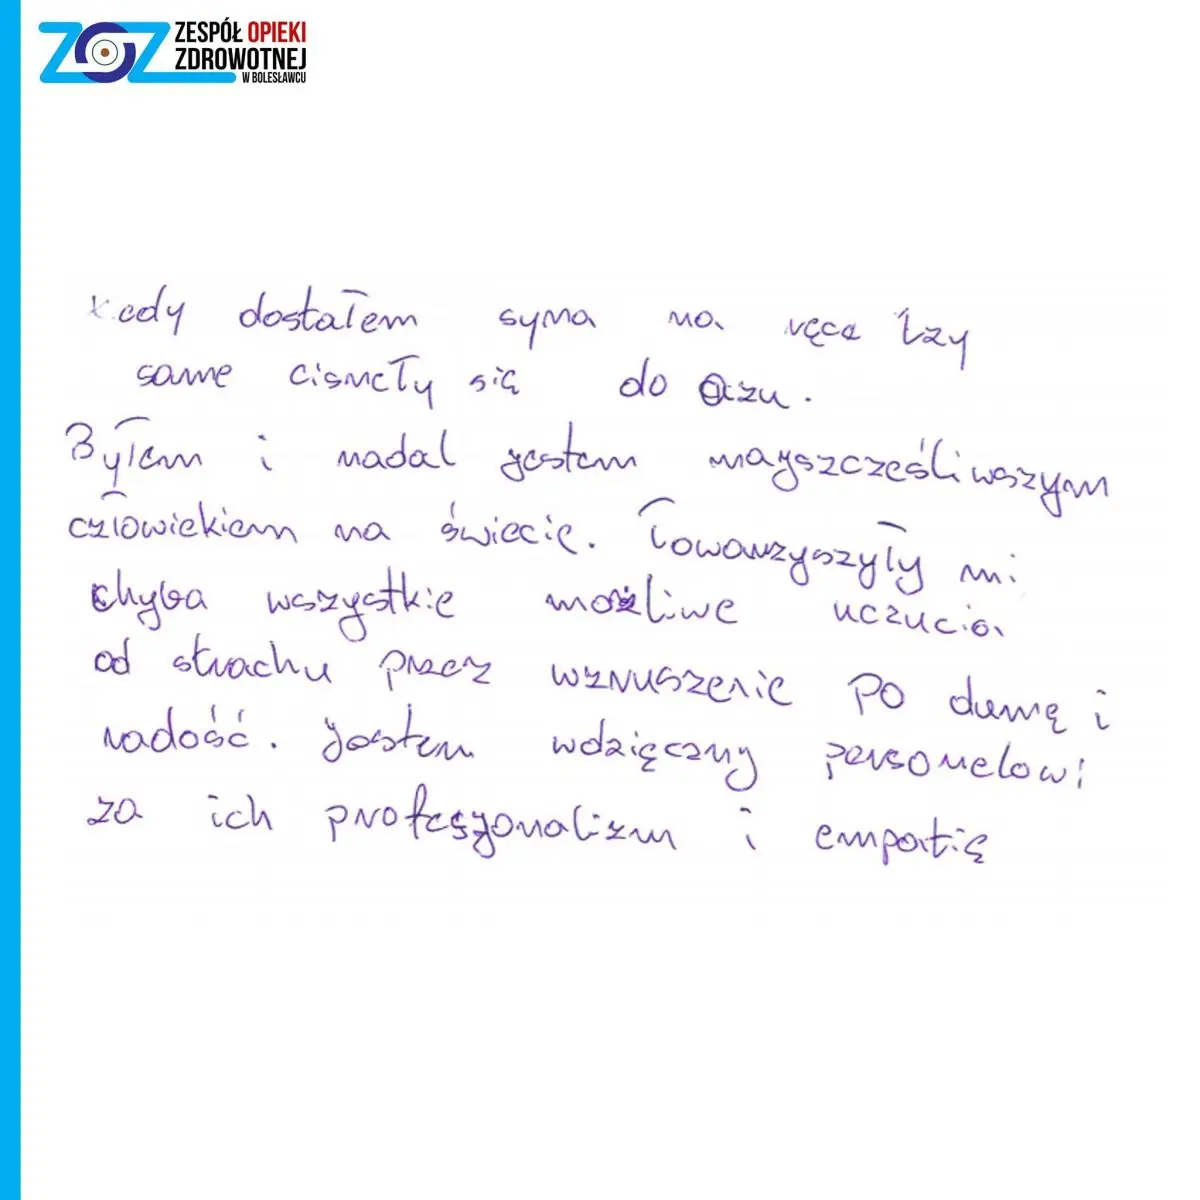 ZOZ
ZESPÓŁ OPIEKI
ZDROWOTNEJ
W BOLESŁAWCU
kedy dostałem syna na ręce łzy
same cisneły się do oczu.
Byłem i nadal jestem najszcześliwszym
człowiekiem na świecie. Towarzyszyły mi
chyba wszystkie możliwe uczucia
od strachu przez wzruszenie po dumę i
radość. Jestem wdzięczny personelowi
za ich profesjonalizm i empatię